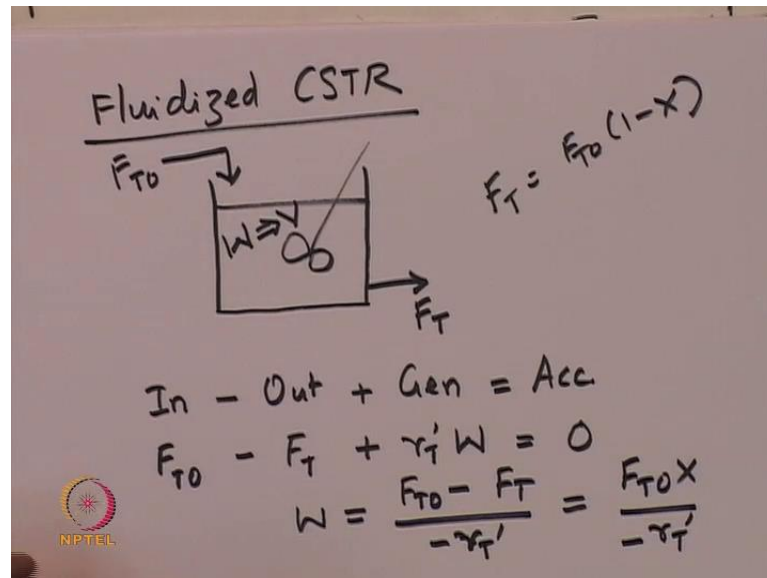 Fluidized CSTR
F_T0
F_T = F_T0 (1-X)
W ⇒
F_T
In - Out + Gen = Acc
F_T0 - F_T + r_T' W = 0
W = \frac{F_T0 - F_T}{-r_T'} = \frac{F_T0 X}{-r_T'}
NPTEL